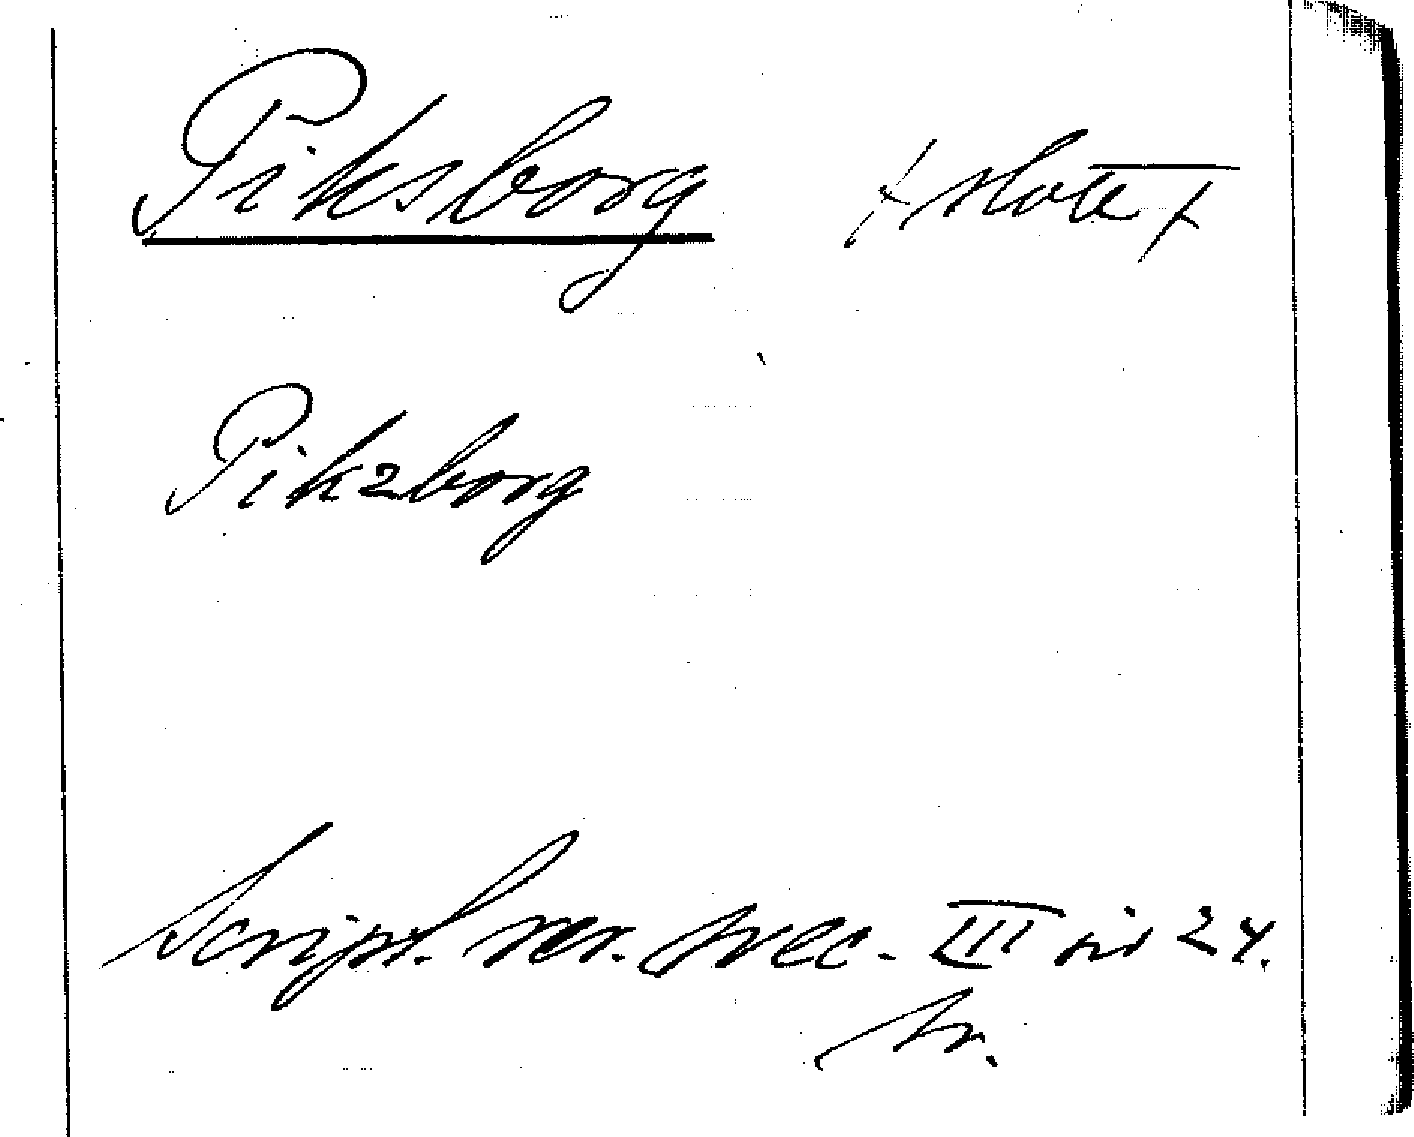 Piksborg ⁒ slott ⁒
Pikzborg
Script. rer. svec. III sid 24.
tr.